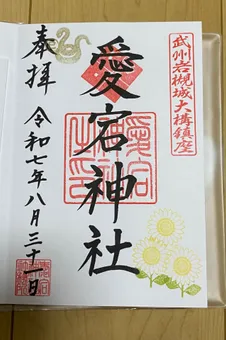 武州岩槻城大構鎮座
愛宕神社
奉拝
令和七年八月三十一日